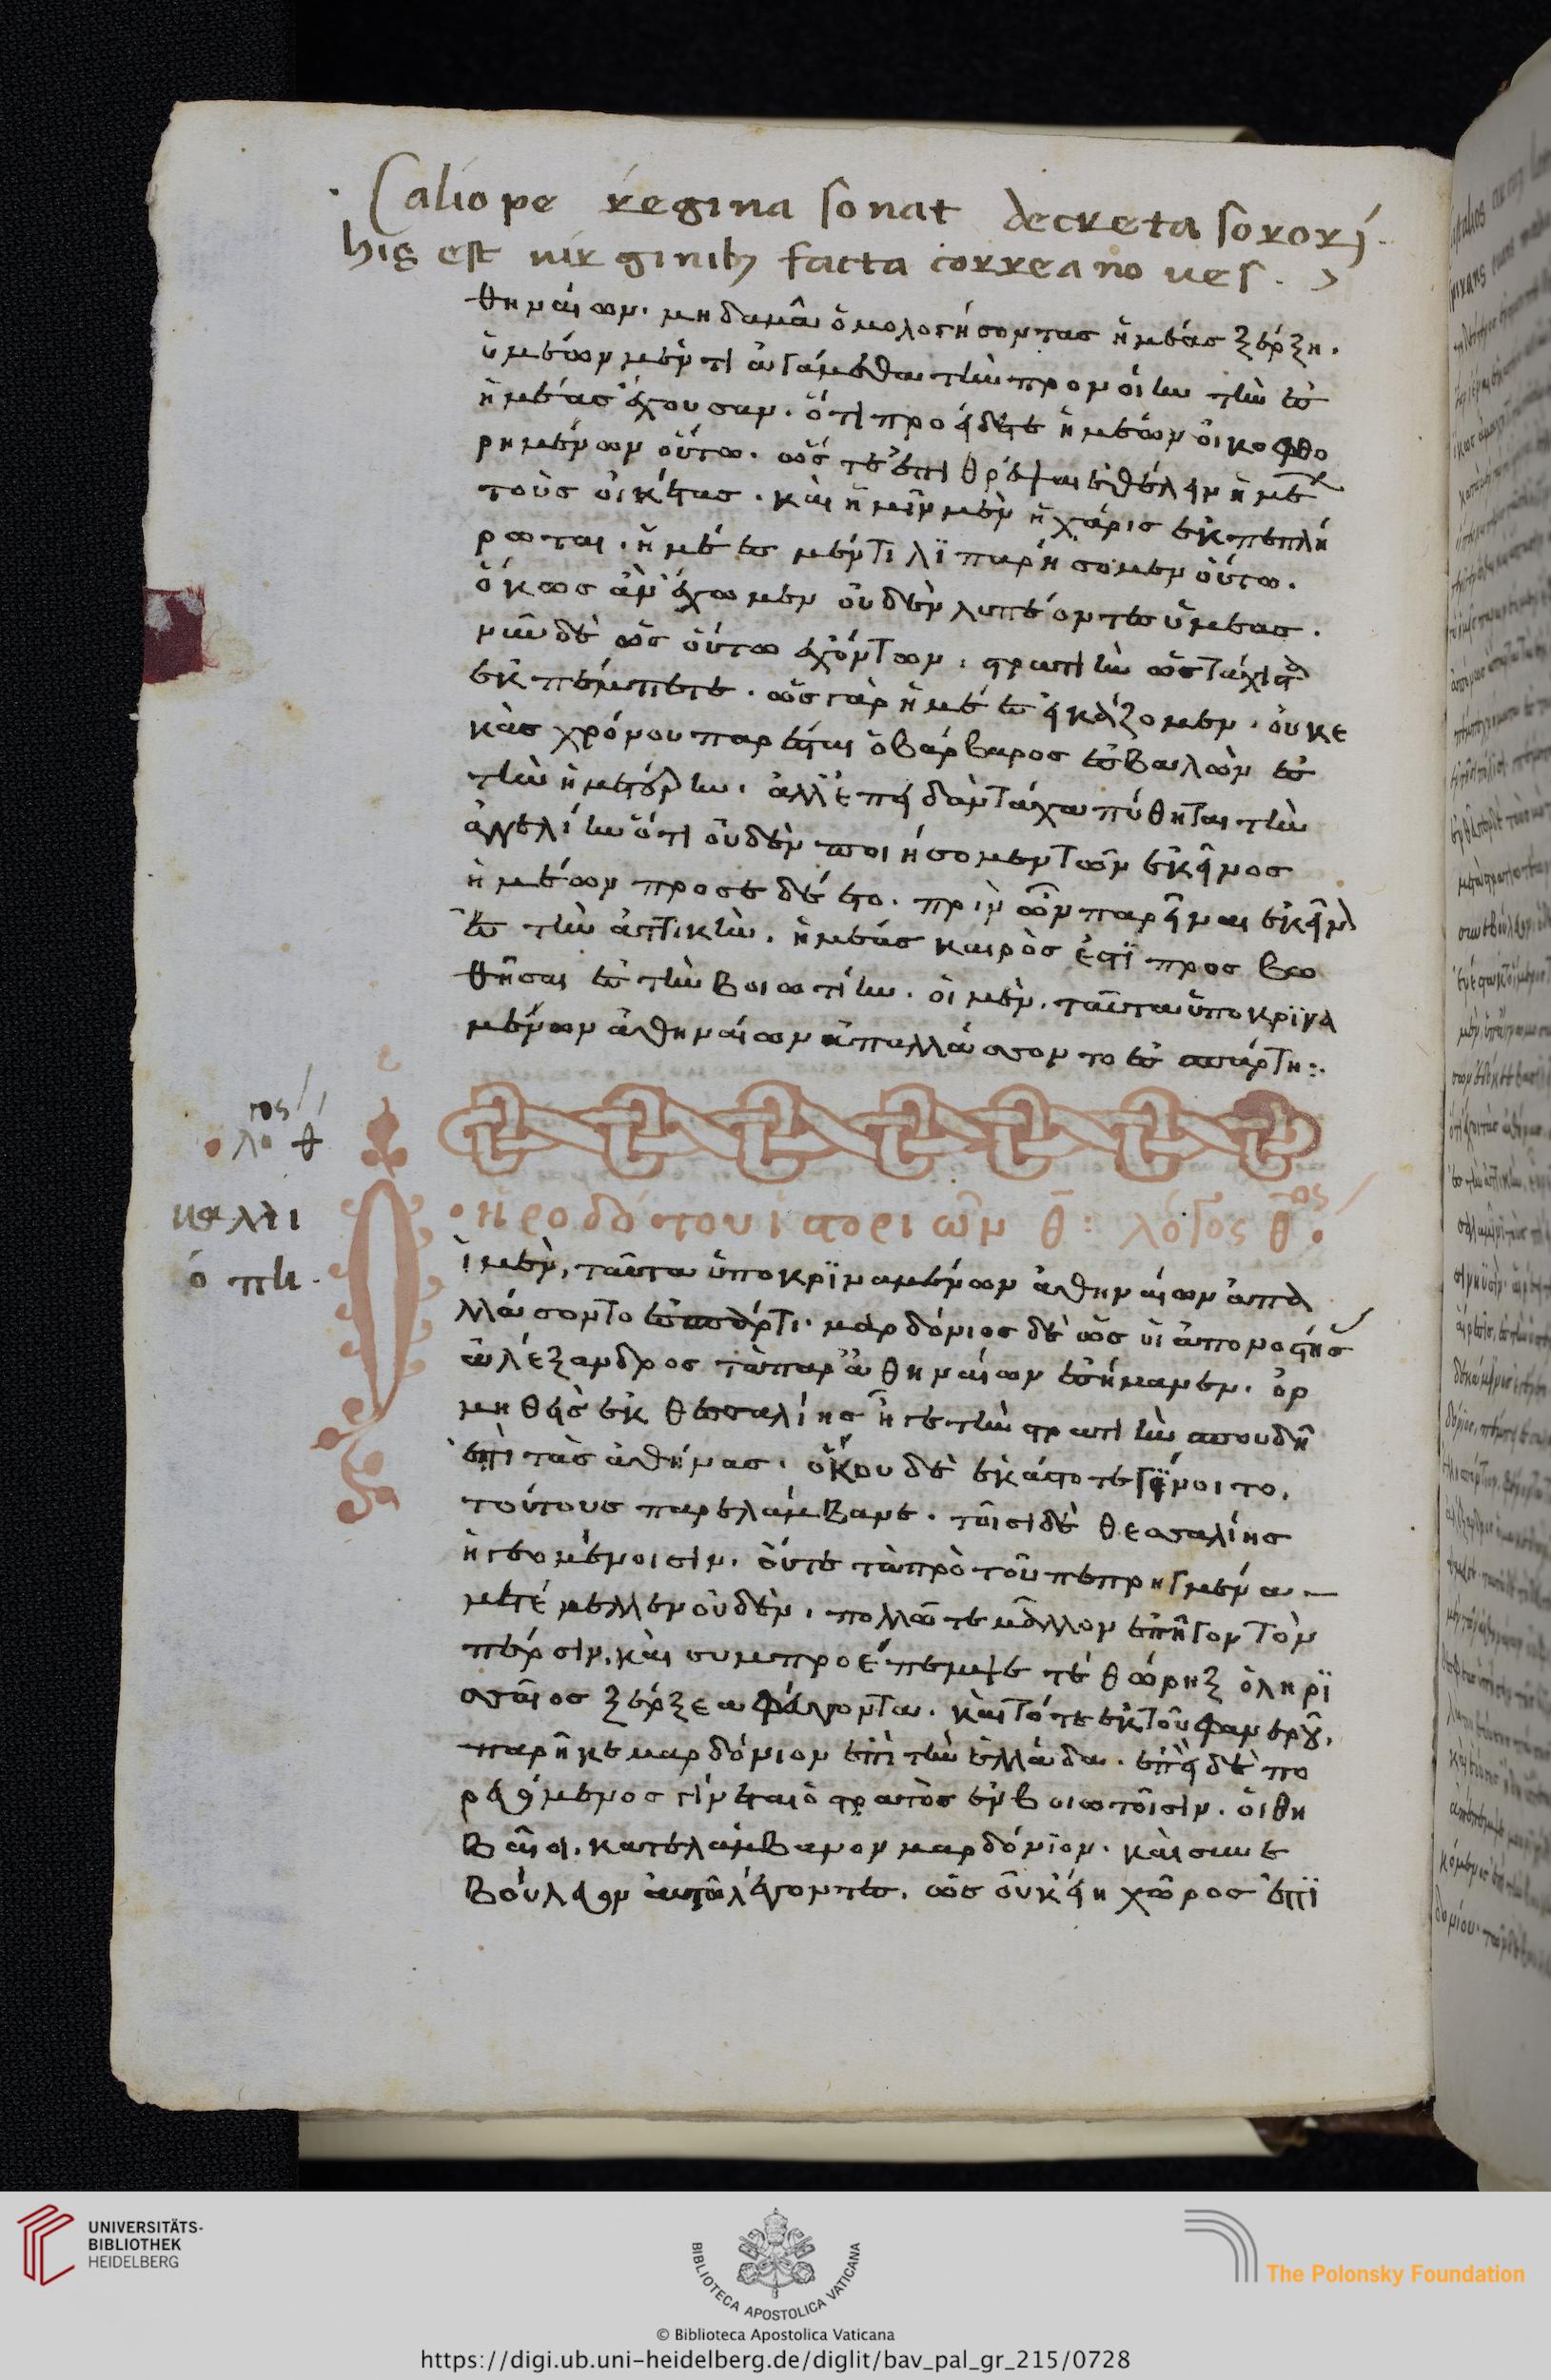 Caliope regina sonat decreta sorori
his est uirginibz facta correano ues.
θηναίων. μηδαμᾶ ὁμολογήσοντας ἡμέας ξέρξη.
ὑμέων μέντι ἀγάμεθα τὴν προνοίην τὴν ἐς
ἡμέας ἔχουσαν. ὅτι προείδετε ἡμέων οἰκοφθο
ρημένων οὕτω. ὥς τε ἐπιθρέψαι ἐθέλειν ἡμε
τοὺς οἰκέτας. καὶ ὑμῖν μὲν ἡ χάρις ἐκπεπλή
ρωται. ἡμέες μέντι λιπαρήσομεν οὕτω.
ὅκως ἂν ἔχωμεν οὐδὲν λυπέοντες ὑμέας.
νῦν δὲ ὡς οὕτω ἐχόντων. στρατιὴν ὡς τάχιστα
ἐκπέμπετε. ὡς γὰρ ἡμέες εἰκάζομεν. οὐκ ἑ
κὰς χρόνου παρέσται ὁ βάρβαρος ἐσβαλὼν ἐς
τὴν ἡμετέρην. ἀλλ' ἐπειδὰν τάχα πύθηται τὴν
ἀγγελίην ὅτι οὐδὲν ποιήσομεν τῶν ἐκεῖνος
ἡμέων προσεδέετο. πρὶν ὦν παρεῖναι ἐκεῖνον
ἐς τὴν ἀττικὴν. ἡμέας καιρὸς ἐστὶ προς βω
θῆσαι ἐς τὴν βοιωτίην. οἱ μὲν. ταῦτα ὑποκρινα
μένων ἀθηναίων ἀπαλλάσσοντο ἐς σπάρτη:.
λογος θ
καλλι
όπη.
ἡροδότου ἱστοριῶν θ: λόγος θος
Οἱ μὲν, ταῦτα ὑποκριναμένων ἀθηναίων ἀπαλ
λάσοντο ἐς σπάρτι. μαρδόνιος δὲ ὥς οἱ ἀπονοστήσ
ἀλέξανδρος τὰ παρ' ἀθηναίων ἐσήμαινεν. ὁρ
μηθεὶς ἐκ θεσσαλίης ἦγε τὴν στρατιὴν σπουδῆ
ἐπὶ τὰς ἀθήνας. ὅκου δὲ ἑκάστοτε γίνοιτο.
τούτους παρελάμβανε. τοῖσι δὲ θεσσαλίης
ἡγεομένοισιν. οὔτε τὰ πρὸ τοῦ πεπρηγμένα
μετέμελλεν οὐδὲν. πολλῶ τε μᾶλλον ἐπῆγον τὸν
πέρσιν, καὶ συμπροέπεμψέ τε θώρηξ ὁ ληρι
σσαῖος ξέρξεα φεύγοντα. καὶ τότε ἐκ τοῦ φανεροῦ,
παρῆκε μαρδόνιον ἐπὶ τὴν ἑλλάδα. ἐπεὶ δὲ πο
ρευόμενος γίνεται ὁ στρατὸς ἐν βοιωτοῖσιν. οἱ θη
βαῖοι. κατελάμβανον μαρδόνιον. καὶ συνε
βούλευον αὐτῶ λέγοντες. ὡς οὐκ εἴη χῶρος ἐπι
UNIVERSITÄTS-
BIBLIOTHEK
HEIDELBERG
BIBLIOTECA APOSTOLICA VATICANA
The Polonsky Foundation
© Biblioteca Apostolica Vaticana
https://digi.ub.uni-heidelberg.de/diglit/bav_pal_gr_215/0728